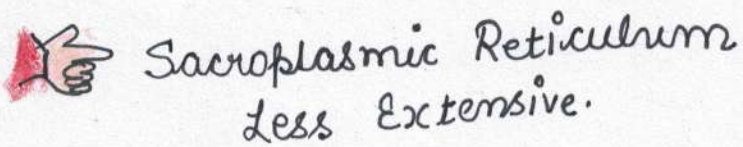 Sacroplasmic Reticulum
Less Extensive.